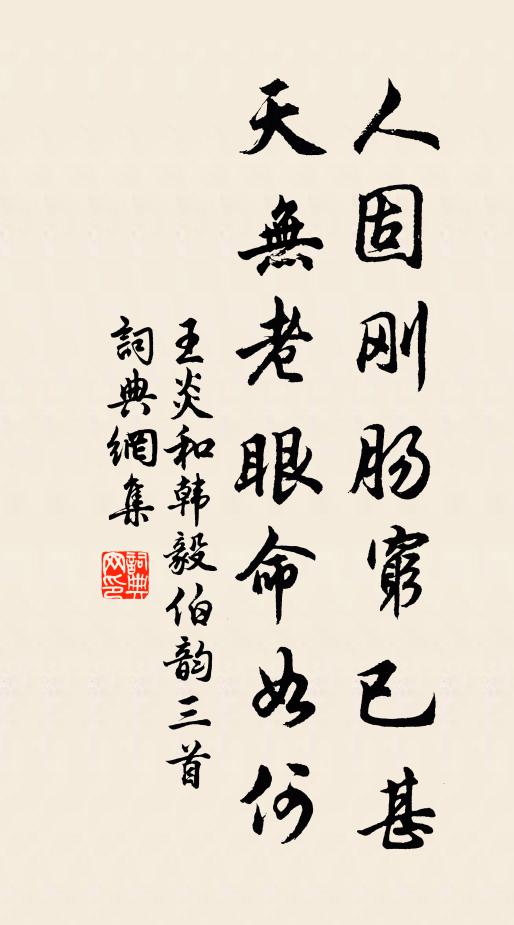 人固刚肠穷已甚
天無老眼命如何
王炎和韩毅伯韵三首
詞典網集
詞典网印